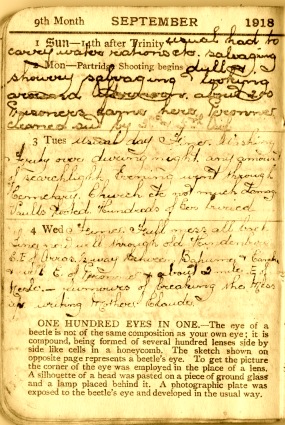 9th Month SEPTEMBER 1918
1 Sun—14th after Trinity usual had to
carry water rations etc. salvaging
2 Mon—Partridge Shooting begins dull &
showery salvaging & looking
around afternoon. about 200
Prisoners came here
cleaned out by
3 Tues usual day Fine.
over during night any amount
of searchlight Evening went through
Cemetery, Church etc not much damage
Vaults Hundreds of Gers buried.
4 Wed Fine. Full
well through old Hindenburg
E. of Arras. away between Bapaume & Cambrai
E. of & about 2 miles E. of
rumours of breaking the
writing Mother Claude.
ONE HUNDRED EYES IN ONE.—The eye of a
beetle is not of the same composition as your own eye; it is
compound, being formed of several hundred lenses side by
side like cells in a honeycomb. The sketch shown on
opposite page represents a beetle's eye. To get the picture
the corner of the eye was employed in the place of a lens.
A silhouette of a head was pasted on a piece of ground glass
and a lamp placed behind it. A photographic plate was
exposed to the beetle's eye and developed in the usual way.